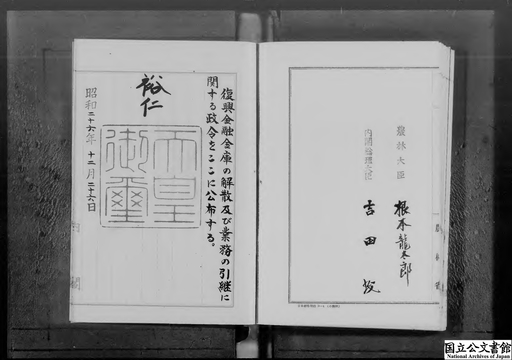 復興金融金庫の解散及び業務の引継に
関する政令をここに公布する。
裕仁
天皇
御璽
昭和二十六年十二月二十六日
内閣
農林大臣
根本龍太郎
内閣総理大臣
吉田茂
国立公文書館
National Archives of Japan